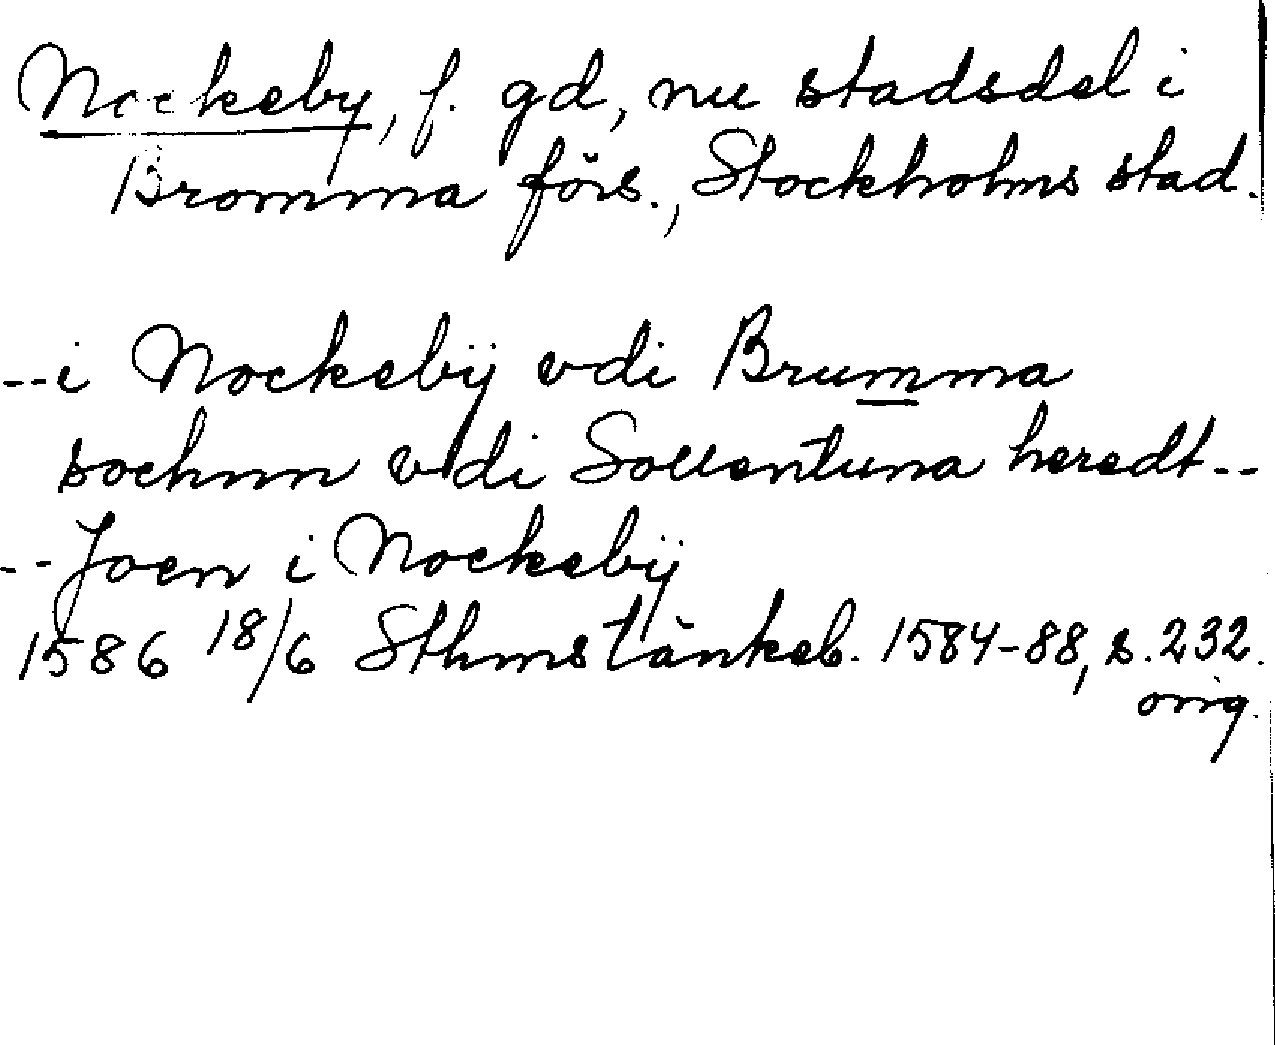 Nockeby, f. gd, nu stadsdel i
Bromma förs., Stockholms stad.
--i Nockebÿ vdi Brumma
sochnn vdi Sollentuna heredt--
--Joen i Nockebÿ
1586 18/6 Sthms tänkeb. 1584-88, s. 232.
orig.